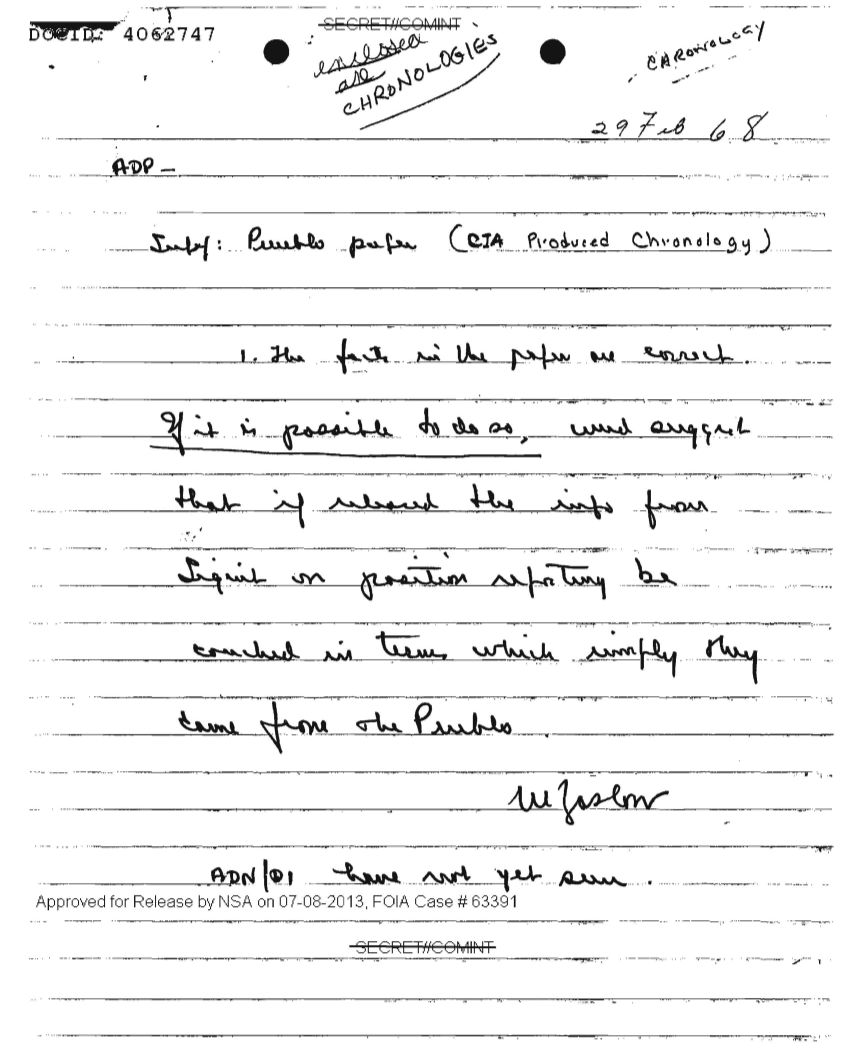 DOCID: 4062747
SECRET//COMINT
enclosed
are
CHRONOLOGIES
CHRONOLOGY
29 Feb 68
ADP —
Subj: Pueblo paper (CIA Produced Chronology)
1. The facts in the paper are correct.
If it is possible to do so, wud suggest
that if released the info from
Sigint on position reporting be
couched in terms which imply they
came from the Pueblo.
M Zaslow
ADN/D1 have not yet seen.
Approved for Release by NSA on 07-08-2013, FOIA Case # 63391
SECRET//COMINT